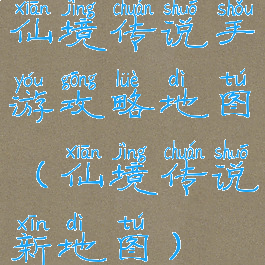 xiān jìng chuán shuō shǒu
仙境传说手
yóu gōng lüè dì tú
游攻略地图
xiān jìng chuán shuō
（仙境传说
xīn dì tú
新地图）